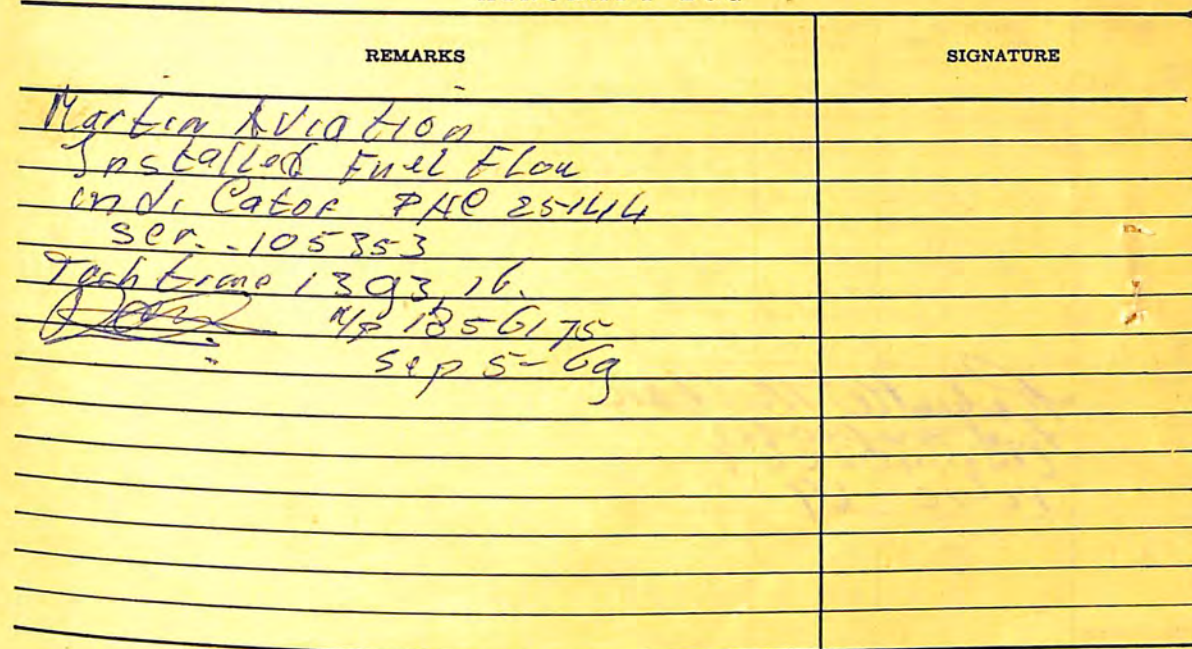 REMARKS
SIGNATURE
Martin Aviation
Installed Fuel Flow
indicator PHC 25144
ser. 105353
Tach time 1393,16.
A/P 1856175
Sep 5-69